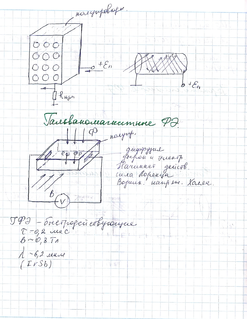 полупров.
+Eп
Rнагр
+Eп
Гальваномагнитные ФЭ
Ф
полупр.
диффузия
дырок и электр.
Начинает действ.
сила Лоренца
Возник. напряж. Холла
B
V
ГФЭ - быстродействующие
τ = 0,2 мкс
B = 0,3 Тл
λ = 6,2 мкм
(InSb)